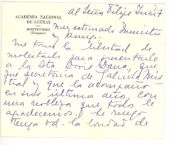 al Señor Felipe
ACADEMIA NACIONAL
DE LETRAS
MONTEVIDEO
(Uruguay)
Mi estimado Maestro
y amigo:
Me tomo la libertad de
molestarle para presentarle
a la Sta Doris Dana, que
fue secretaria de Gabriela Mis
tral y que la acompañó
en sus últimos años, con
una nobleza que todos le
agradecemos. Le ruego
tenga Vd. la bondad de